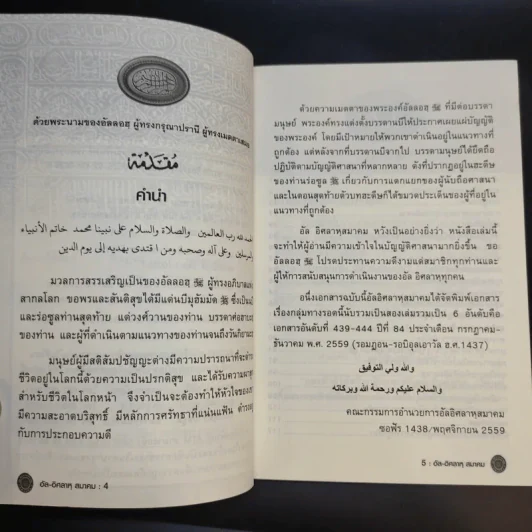 ด้วยพระนามของอัลลอฮฺ ผู้ทรงกรุณาปรานี ผู้ทรงเมตตาเสมอ
مقدمة
คำนำ
الحمد لله رب العالمين والصلاة والسلام على نبينا محمد خاتم الأنبياء
والمرسلين وعلى آله وصحبه ومن اقتدى بهديه إلى يوم الدين
มวลการสรรเสริญเป็นของอัลลอฮฺ ﷻ ผู้ทรงอภิบาลแห่ง
สากลโลก ขอพรและสันติสุขได้มีแด่นบีมุฮัมมัด ﷺ ซึ่งเป็นนบี
และร่อซูลท่านสุดท้าย แด่วงศ์วานของท่าน บรรดาศ่อฮาบะฮฺ
ของท่าน และผู้ที่ดำเนินตามแนวทางของท่านจนถึงวันกิยามะฮฺ
มนุษย์ผู้มีสติสัมปชัญญะต่างมีความปรารถนาที่จะดำรง
ชีวิตอยู่ในโลกนี้ด้วยความเป็นปรกติสุข และได้รับความผาสุก
สำหรับชีวิตในโลกหน้า จึงจำเป็นจะต้องทำให้หัวใจของเขา
มีความสะอาดบริสุทธิ์ มีหลักการศรัทธาที่แน่นแฟ้น ดำรงอยู่
กับการประกอบความดี
อัล-อิศลาหฺ สมาคม : 4
ด้วยความเมตตาของพระองค์อัลลอฮฺ ﷻ ที่มีต่อบรรดา
มนุษย์ พระองค์ทรงแต่งตั้งบรรดานบีให้ประกาศเผยแผ่บัญญัติ
ของพระองค์ โดยมีเป้าหมายให้พวกเขาดำเนินอยู่ในแนวทางที่
ถูกต้อง แต่หลังจากที่บรรดานบีจากไป บรรดามนุษย์ได้ยึดถือ
ปฏิบัติตามบัญญัติศาสนาที่หลากหลาย ดังที่ปรากฏอยู่ในฮะดีษ
ของท่านร่อซูล ﷺ เกี่ยวกับการแตกแยกของผู้นับถือศาสนา
และในตอนสุดท้ายตัวบทฮะดีษก็ได้ขมวดประเด็นของผู้ที่อยู่ใน
แนวทางที่ถูกต้อง
อัล อิศลาหฺสมาคม หวังเป็นอย่างยิ่งว่า หนังสือเล่มนี้
จะทำให้ผู้อ่านมีความเข้าใจในบัญญัติศาสนามากยิ่งขึ้น ขอ
อัลลอฮฺ ﷻ โปรดประทานความดีงามแด่สมาชิกทุกท่านและ
ผู้ให้การสนับสนุนการดำเนินงานของอัล อิศลาหฺทุกคน
อนึ่งเอกสารฉบับนี้อัลอิศลาหฺสมาคมได้จัดพิมพ์เอกสาร
เรื่องกลุ่มทางรอดนี้นับรวมเป็นสองเล่มรวมเป็น 6 อันดับคือ
เอกสารอันดับที่ 439-444 ปีที่ 84 ประจำเดือน กรกฎาคม-
ธันวาคม พ.ศ. 2559 (รอมฎอน-รอบีอุลเอาวัล ฮ.ศ.1437)
والله ولي التوفيق
والسلام عليكم ورحمة الله وبركاته
คณะกรรมการอำนวยการอัลอิศลาหฺสมาคม
ซอฟัร 1438/พฤศจิกายน 2559
5 : อัล-อิศลาหฺ สมาคม